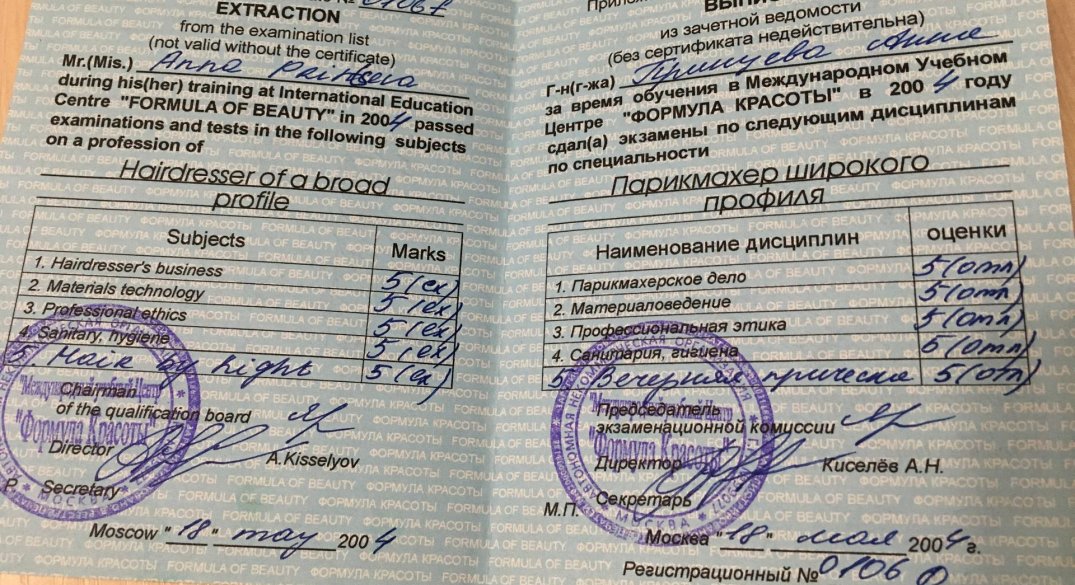 № 0106
EXTRACTION
from the examination list
(not valid without the certificate)
Mr.(Mis.) Anna
during his(her) training at International Education
Centre "FORMULA OF BEAUTY" in 2004 passed
examinations and tests in the following subjects
on a profession of
Hairdresser of a broad
profile
Subjects Marks
1. Hairdresser's business 5 (ex)
2. Materials technology 5 (ex)
3. Professional ethics 5 (ex)
4. Sanitary, hygiene 5 (ex)
5 Hair by hight 5 (ex)
Chairman
of the qualification board
Director A.Kisselyov
P. Secretary
Moscow "18" may 2004
из зачетной ведомости
(без сертификата недействительна)
Г-н(г-жа) Принцева Анна
за время обучения в Международном Учебном
Центре "ФОРМУЛА КРАСОТЫ" в 2004 году
сдал(а) экзамены по следующим дисциплинам
по специальности
Парикмахер широкого
профиля
Наименование дисциплин оценки
1. Парикмахерское дело 5 (отл)
2. Материаловедение 5 (отл)
3. Профессиональная этика 5 (отл)
4. Санитария, гигиена 5 (отл)
5 Вечерняя прическа 5 (отл)
Председатель
экзаменационной комиссии
Директор Киселёв А.Н.
Секретарь
М.П.
Москва "18" мая 2004 г.
Регистрационный № 0106
"Формула Красоты"
"Формула Красоты"